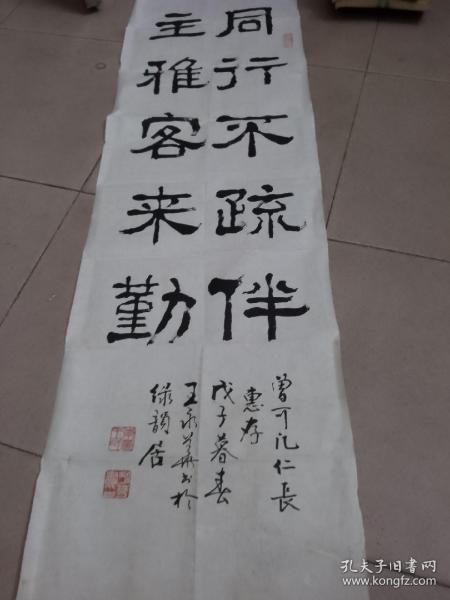 同行不疏伴
主雅客来勤
曾可凡仁長
惠存
戊子暮春
王永華书於
绿韻居
孔夫子旧書网
www.kongfz.com